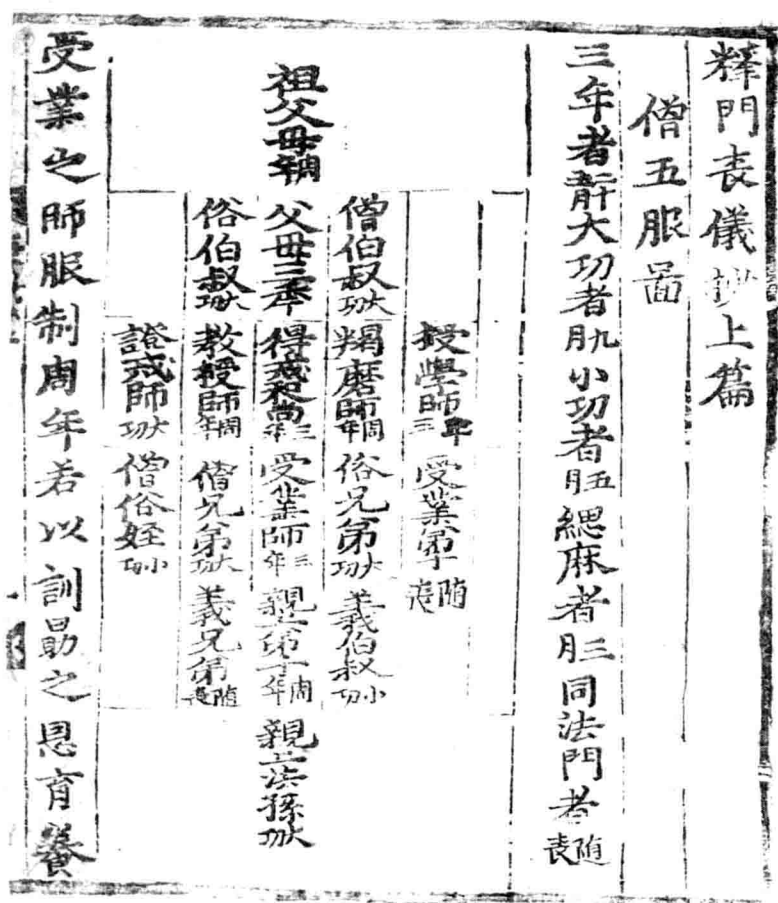 釋門喪儀抄上篇
僧五服啚
三年者二十五月大功者九月小功者五月緦麻者三月同法門者随喪
授學師三年 受業弟子随喪
僧伯叔大功 羯磨師周年 俗兄弟大功 義伯叔小功
祖父母周年 父母三年 得戒和尚三年 受業師三年 親上弟子周年 親上法孫大功
俗伯叔大功 教授師周年 僧兄弟大功 義兄弟随喪
證戒師大功 僧俗姪小功
受業之師服制周年若以訓勗之恩育養